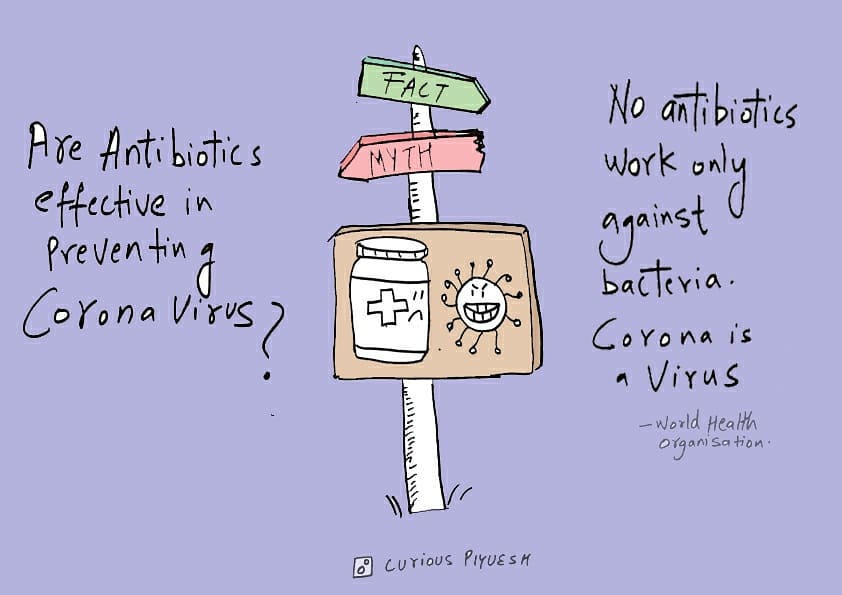 Are Antibiotics
effective in
Preventing
Corona Virus?
FACT
MYTH
No antibiotics
work only
against
bacteria.
Corona is
a Virus
- World Health
Organisation.
CURIOUS PIYUESH